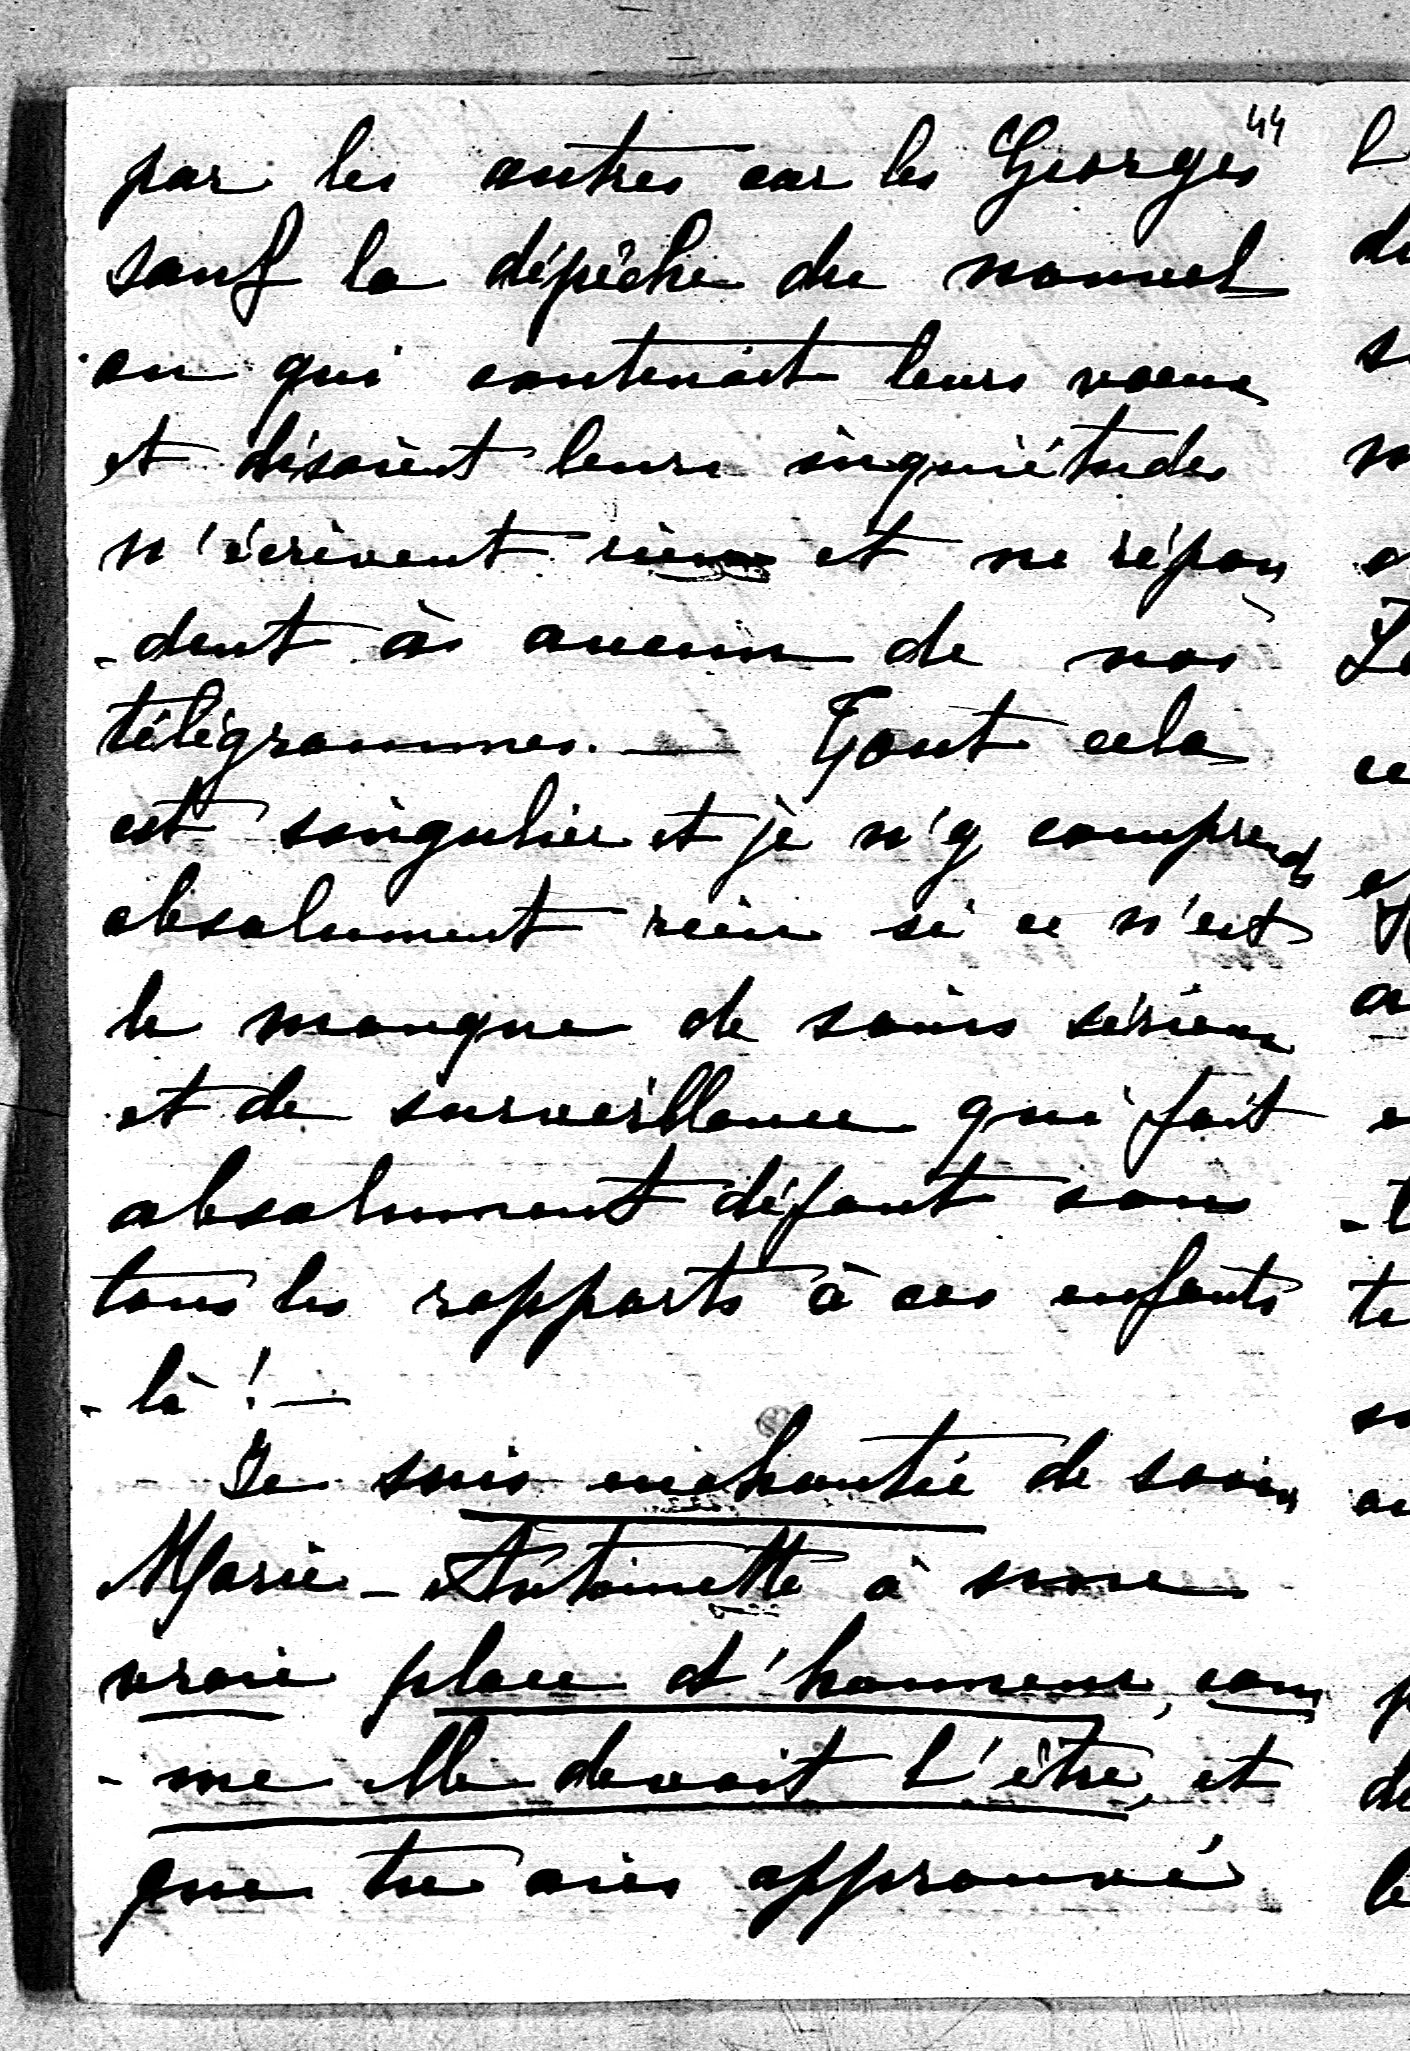 44
par les autres car les Georges
sauf la dépêche du nouvel
an qui contenait leurs voeux
et disaient leurs inquiétudes
n'écrivent rien et ne répon
-dent à aucun de nos
télégrammes. — Tout cela
est singulier et je n'y comprends
absolument rien si ce n'est
le manque de soins sérieux
et de surveillance qui fait
absolument défaut sous
tous les rapports à ces enfants
-là ! —
Je suis enchantée de savoir
Marie-Antoinette à une
vraie place d'honneur, com
-me elle devait l'être, et
que tu aies approuvé